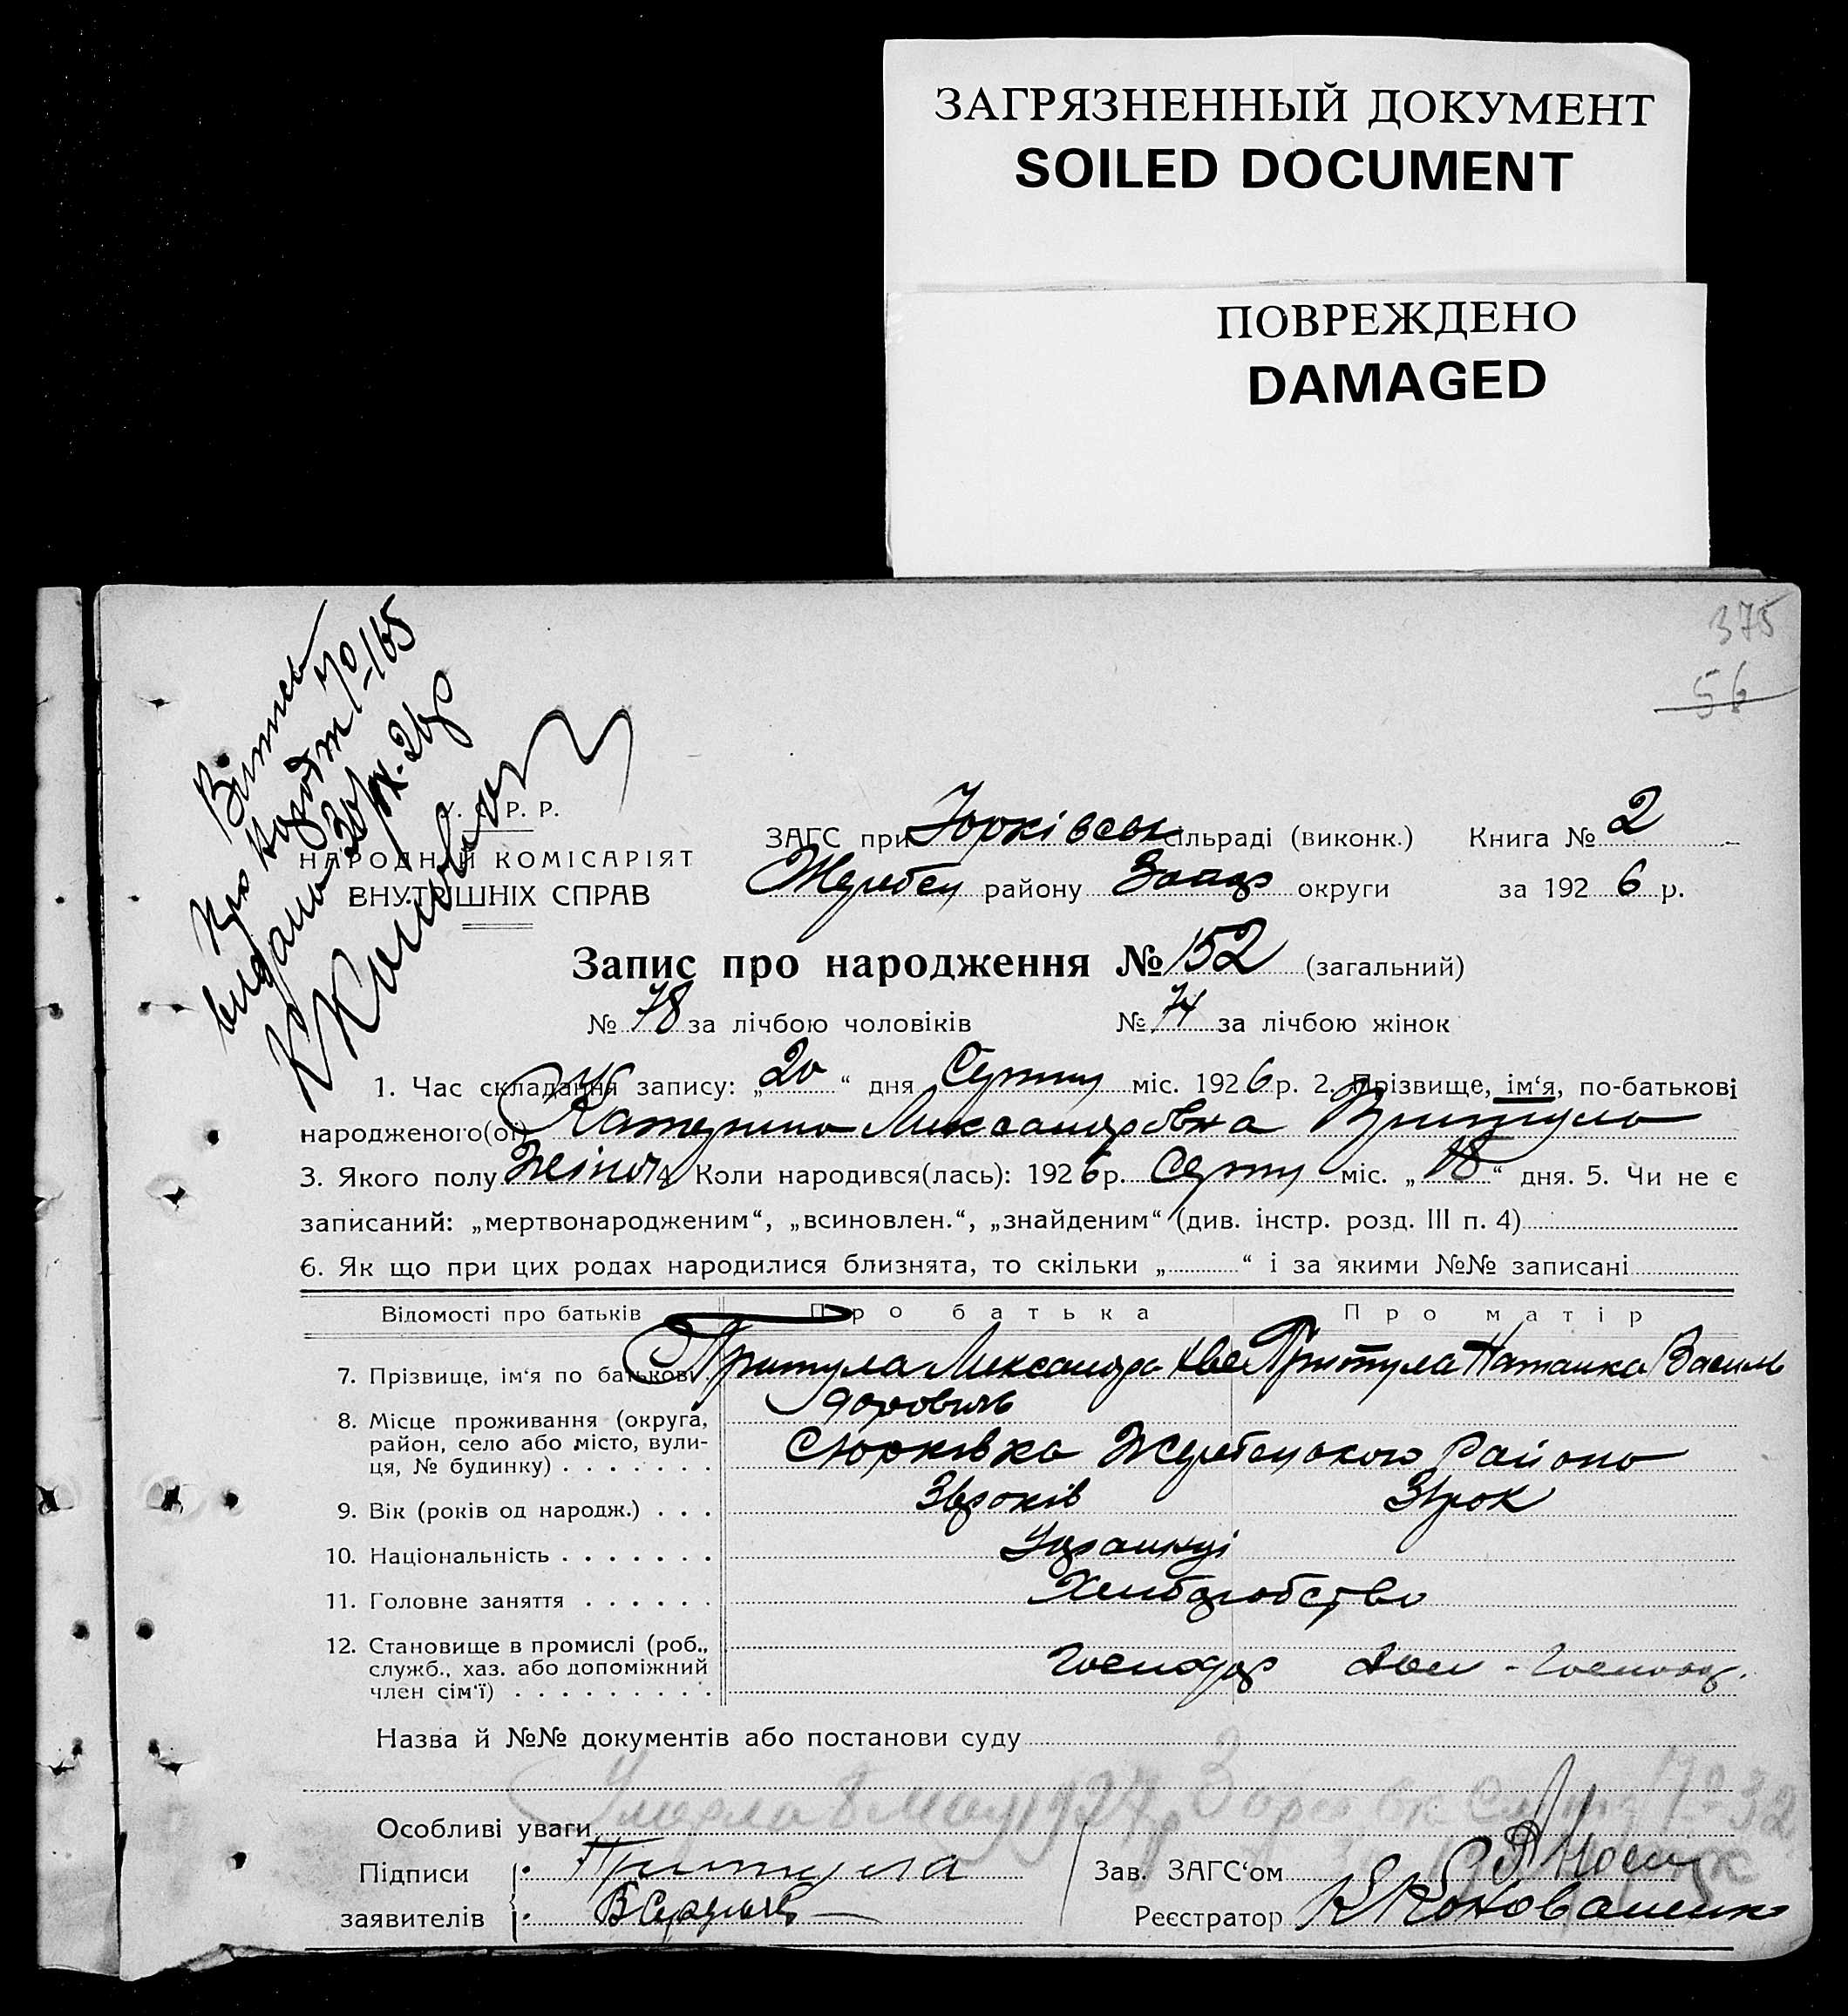 ЗАГРЯЗНЕННЫЙ ДОКУМЕНТ
SOILED DOCUMENT
ПОВРЕЖДЕНО
DAMAGED
375
56
Витяг
про народж 70-165
видано 30/IX-26р
У. Р. Р.
НАРОДНИЙ КОМІСАРІЯТ
ВНУТРІШНІХ СПРАВ
ЗАГС при Юрківськ сільраді (виконк.) Книга № 2
Жеребец району Запор округи за 1926 р.
Запис про народження № 152 (загальний)
№ 78 за лічбою чоловіків № 74 за лічбою жінок
1. Час складання запису: „20“ дня Серпня міс. 1926 р. 2. Прізвище, ім‘я, по-батькові
народженого(ої) Катерина Лександровна Притула
3. Якого полу Жіноч 4. Коли народився(лась): 1926 р. Серпня міс. „18“ дня. 5. Чи не є
записаний: „мертвонародженим“, „всиновлен.“, „знайденим“ (див. інстр. розд. III п. 4)
6. Як що при цих родах народилися близнята, то скільки „ “ і за якими №№ записані
Відомості про батьків Про батька Про матір
7. Прізвище, ім‘я по батькові. Притула Лександр Притула Наталка Василь
8. Місце проживання (округа,
район, село або місто, вули-
ця, № будинку) . . . . . . . С Юрківка Жеребецького Району
9. Вік (років од народж.) . . . 36 років 36 рок
10. Національність . . . . . . . Українці
11. Головне заняття . . . . . . Хліборобство
12. Становище в промислі (роб.,
служб., хаз. або допоміжний
член сім‘ї) . . . . . . . . . Господар
Назва й №№ документів або постанови суду
Умерла 8 мая 1927 р
Особливі уваги
Підписи Притула Зав. ЗАГС‘ом
заявителів Реєстратор К Коноваленко